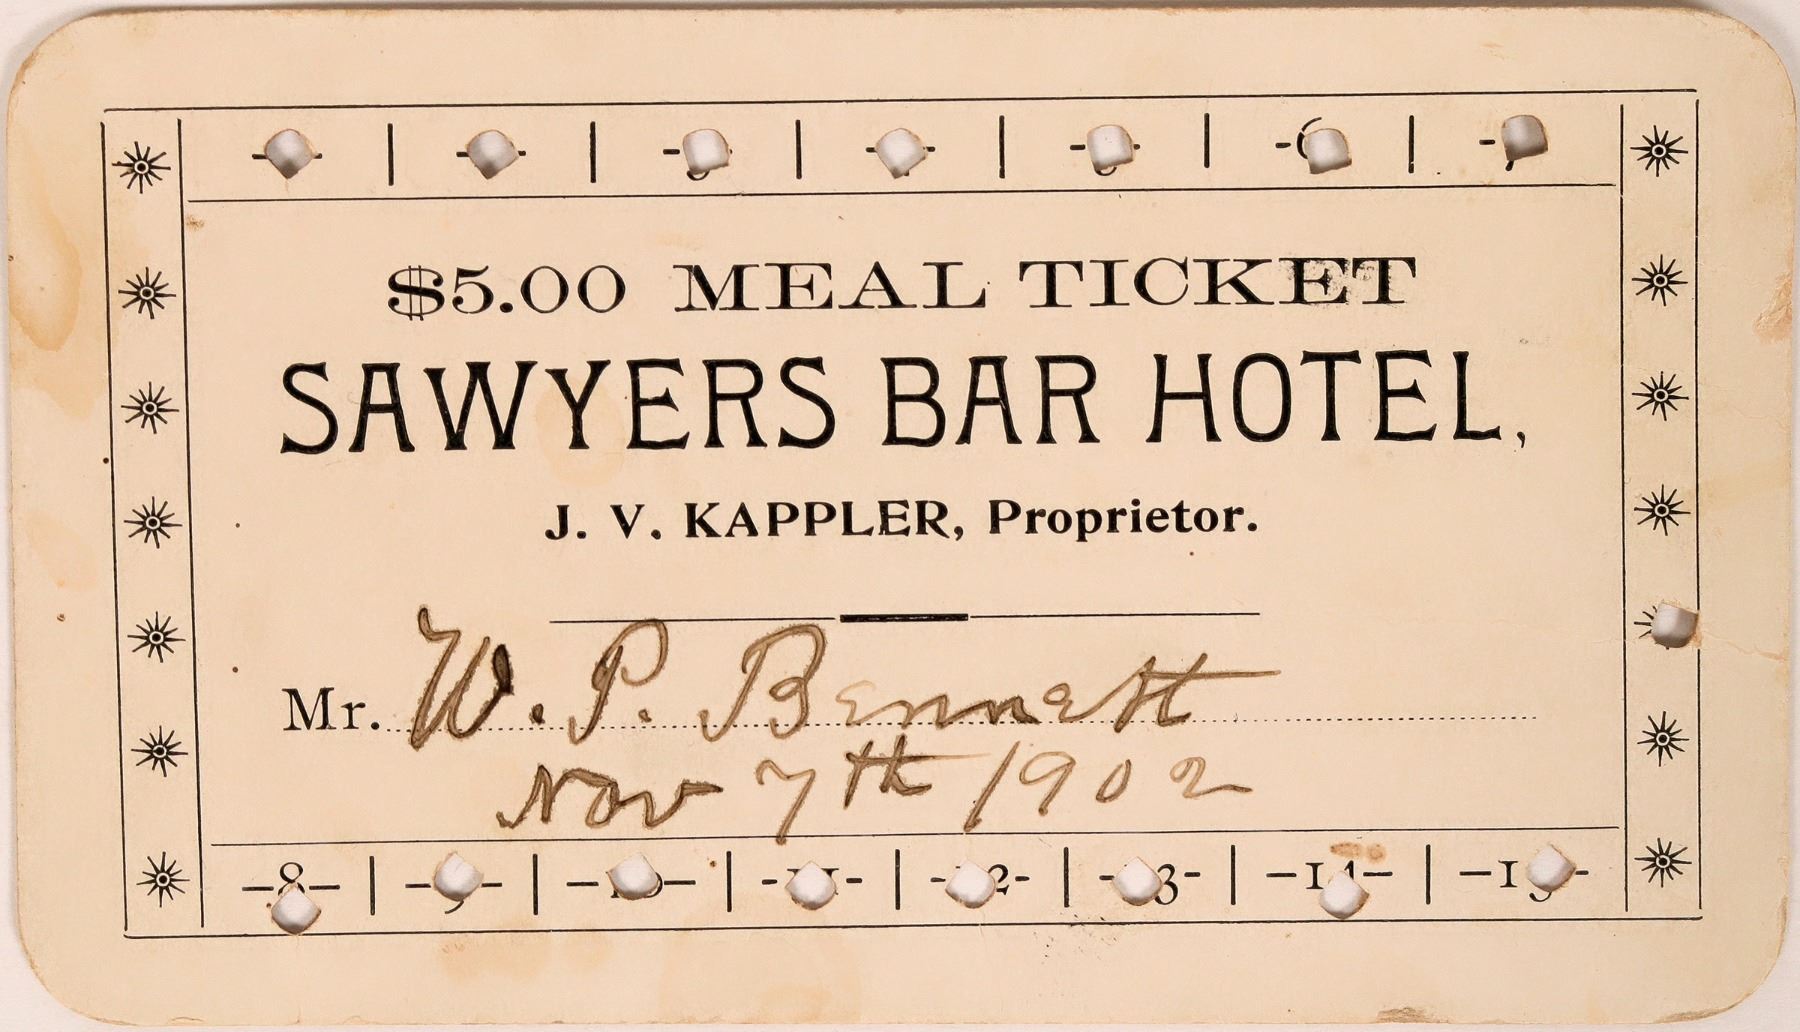 $5.00 MEAL TICKET
SAWYERS BAR HOTEL,
J. V. KAPPLER, Proprietor.
Mr. W. P. Bennett
Nov 7th 1902
-8- | | | | | | -14- | -15-